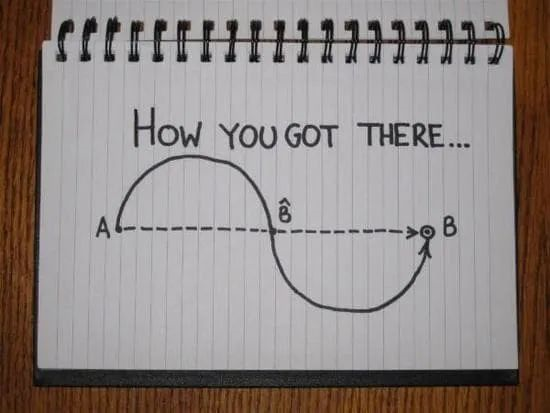 HOW YOU GOT THERE...
B̂
A B